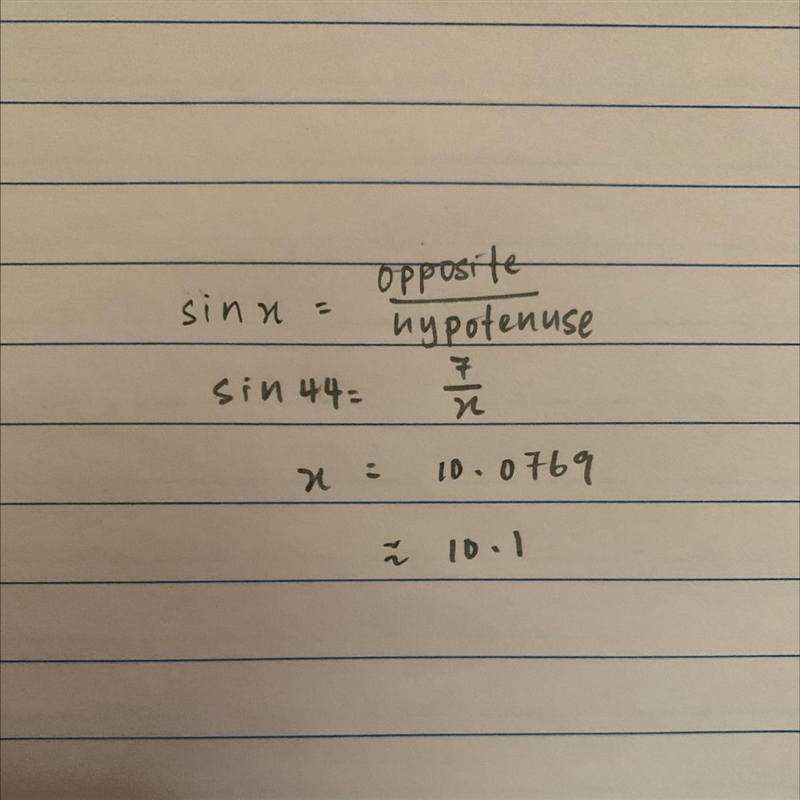 sin x = opposite / hypotenuse
sin 44 = 7 / x
x = 10.0769
≈ 10.1